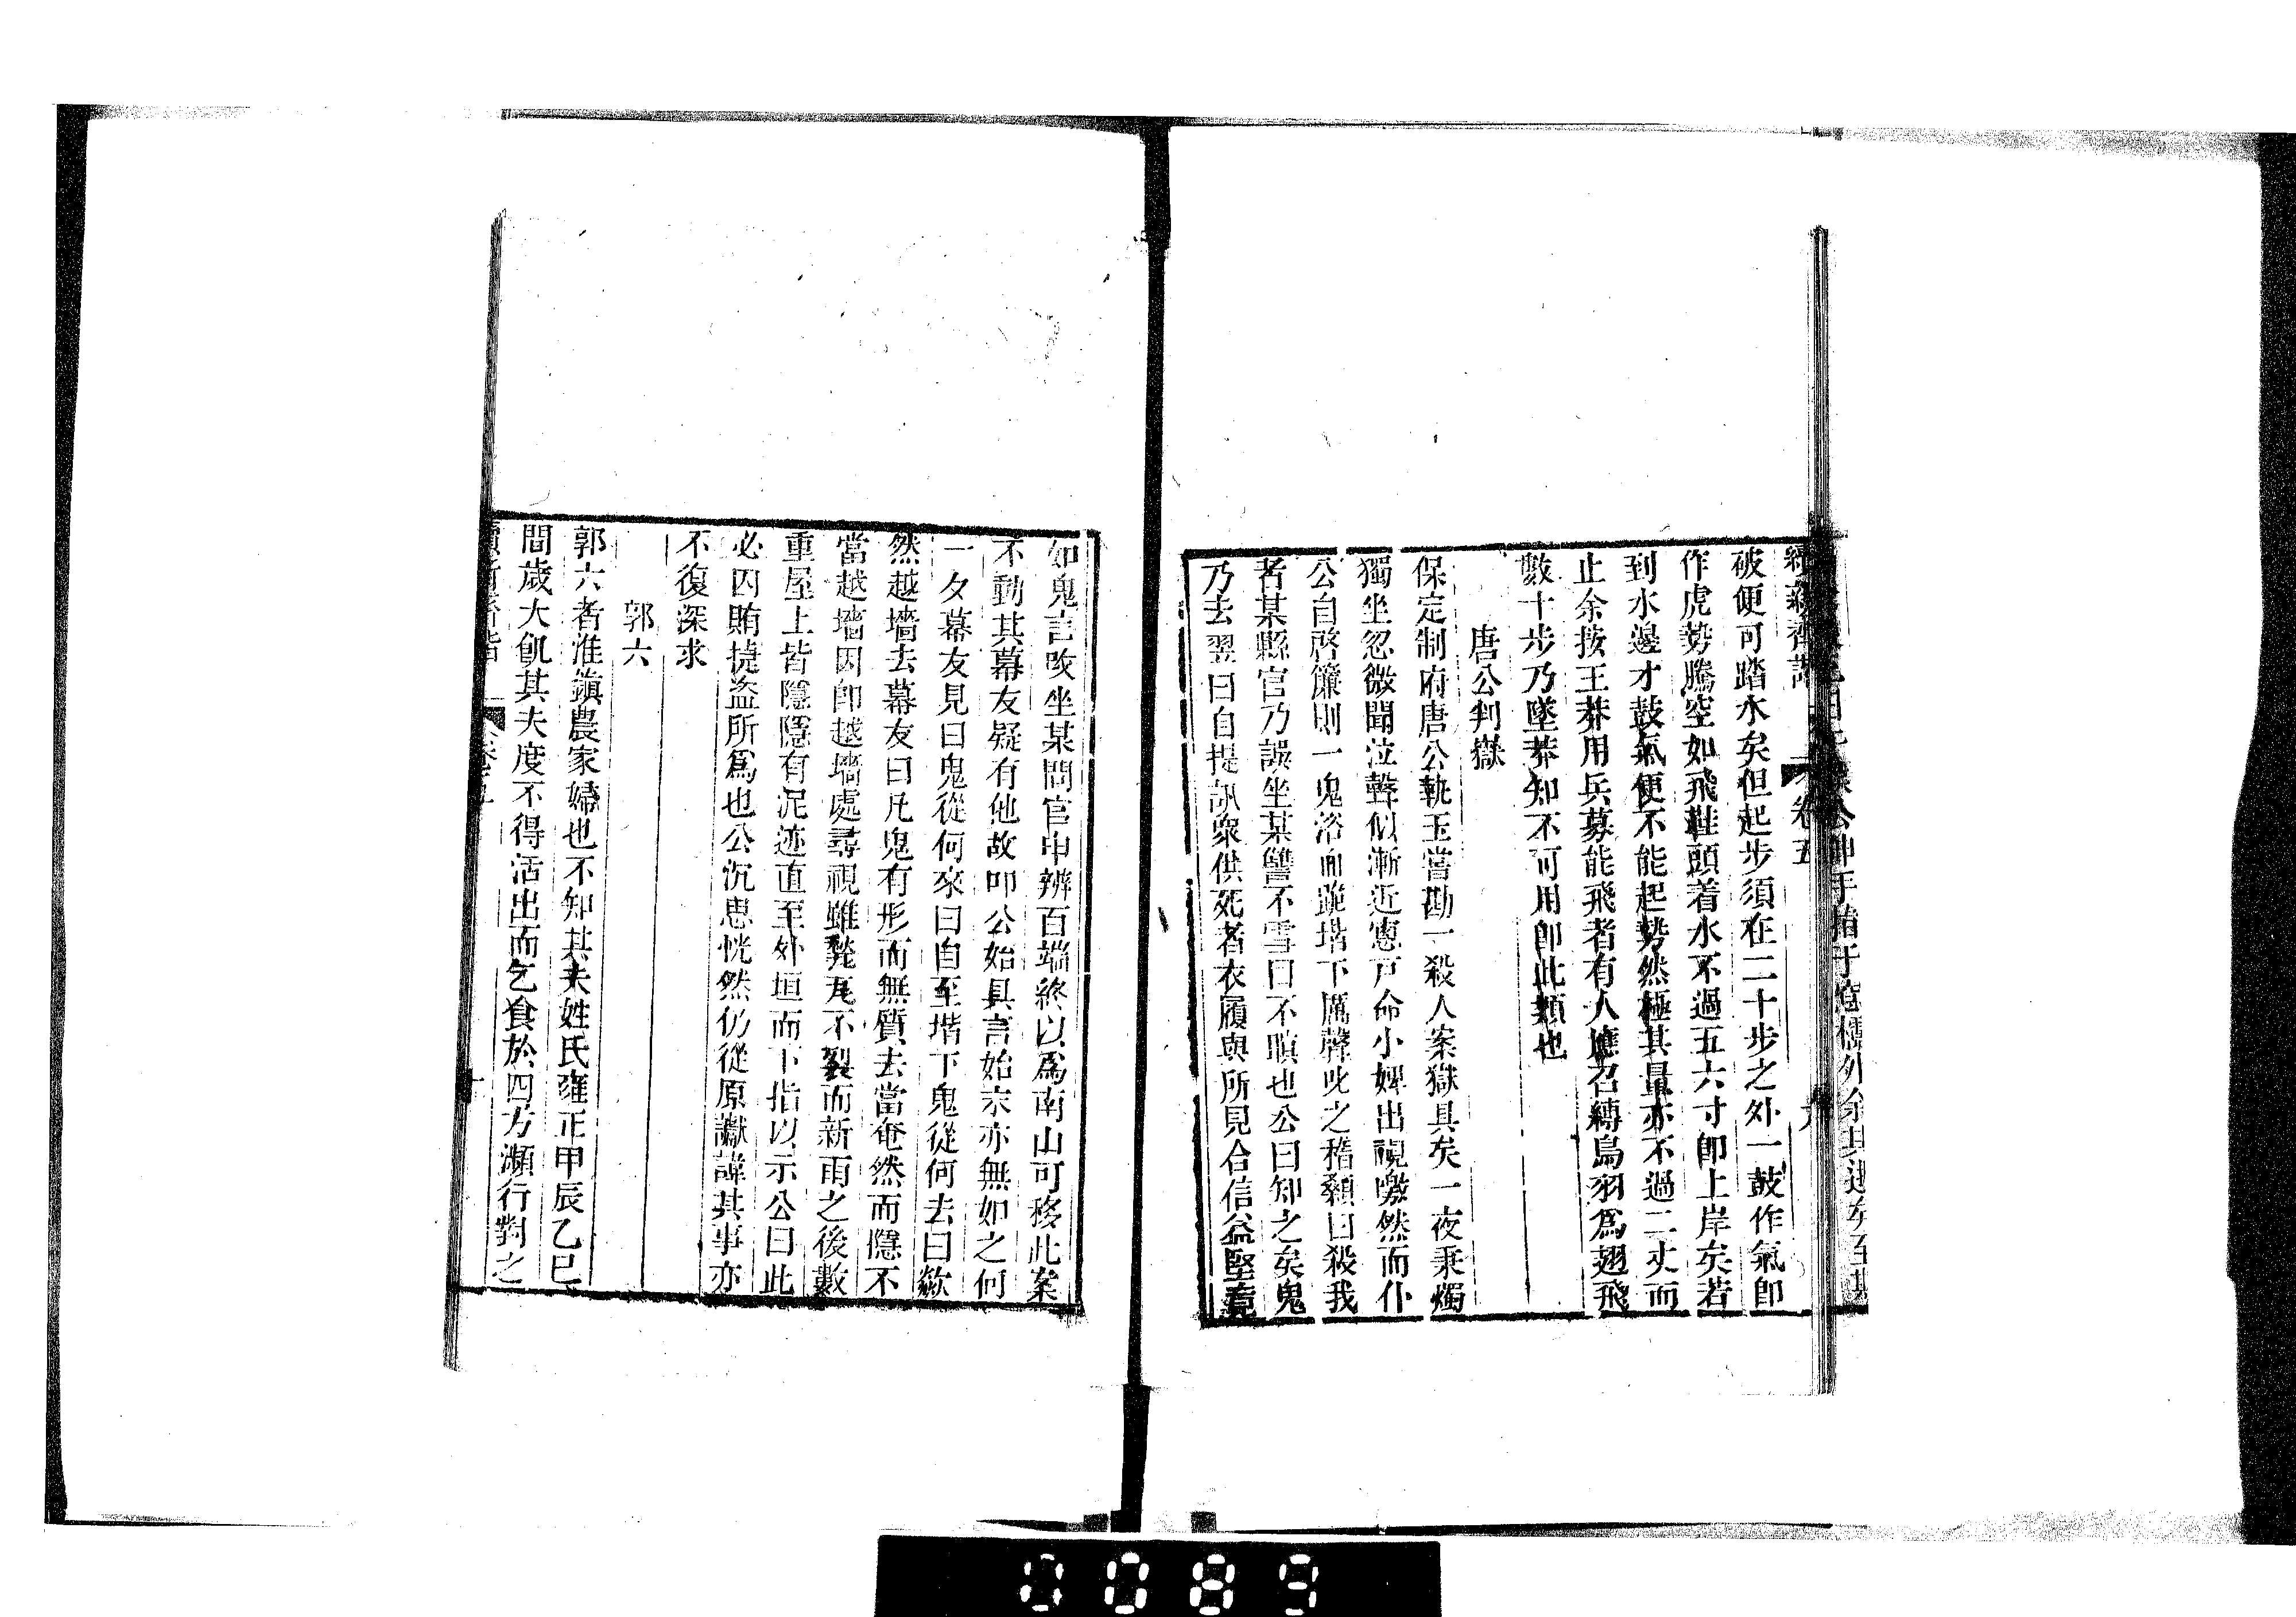 續新齊諧 卷五 九
破便可踏水矣但起步須在二十步之外一鼓作氣卽
作虎勢騰空如飛鞋頭着水不過五六寸卽上岸矣若
到水邊才鼓氣便不能起勢然極其量亦不過二丈而
止余按王莽用兵募能飛者有人應召縛鳥羽爲翅飛
數十步乃墜莽知不可用卽此類也
唐公判獄
保定制府唐公執玉嘗勘一殺人案獄具矣一夜秉燭
獨坐忽微聞泣聲似漸近窻戸命小婢出視噭然而仆
公自啓簾則一鬼浴血跪堦下厲聲叱之稽顙曰殺我
者某縣官乃誤坐某讐不雪目不瞑也公曰知之矣鬼
乃去翌日自提訊衆供死者衣履與所見合信益堅竟
如鬼言改坐某問官申辨百端終以爲南山可移此案
不動其幕友疑有他故叩公始具言始末亦無如之何
一夕幕友見曰鬼從何來曰自至堦下鬼從何去曰欻
然越墻去幕友曰凡鬼有形而無質去當奄然而隱不
當越墻因卽越墻處尋視雖甃瓦不裂而新雨之後數
重屋上皆隱隱有泥迹直至外垣而下指以示公曰此
必囚賄捷盜所爲也公沉思恍然仍從原讞諱其事亦
不復深求
郭六
郭六者淮鎭農家婦也不知其夫姓氏雍正甲辰乙巳
間歲大飢其夫度不得活出而乞食於四方瀕行對之
續新齊諧 卷五 十
0089